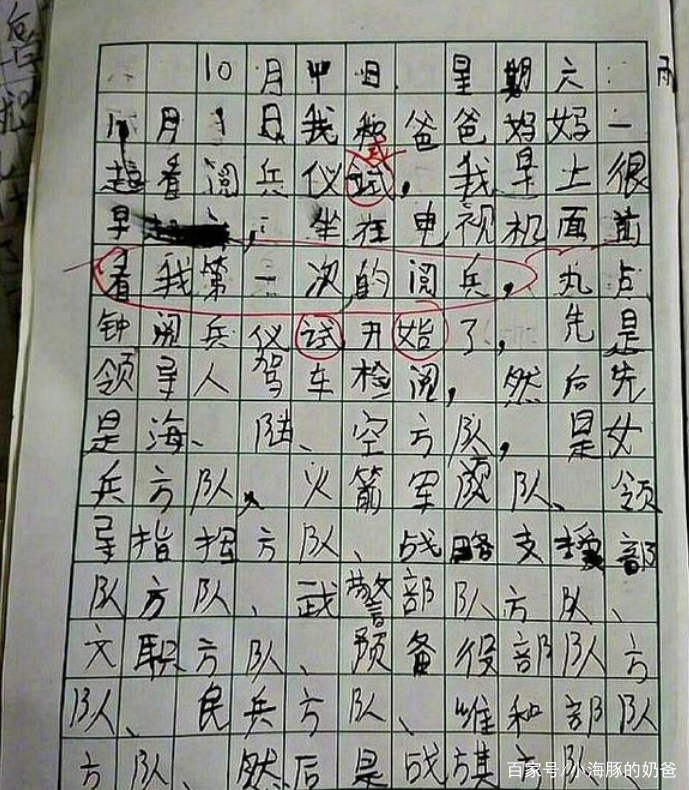 10月4日 星期六 雨
10月1日我和爸爸妈妈一
起看阅兵仪试，我早上很
式
早起，坐在电视机面前
看我第一次的阅兵，丸点
钟阅兵仪试开始了，先是
领导人驾车检阅，然后先
是海、陆、空方队，是女
兵方队、火箭军方队、领
导指挥方队、战略支援部
队方队、武警部队方队、
文职方队、预备役部队方
队、民兵方队、维和部队
方队、然后是战旗方队、
百家号/小海豚的奶爸